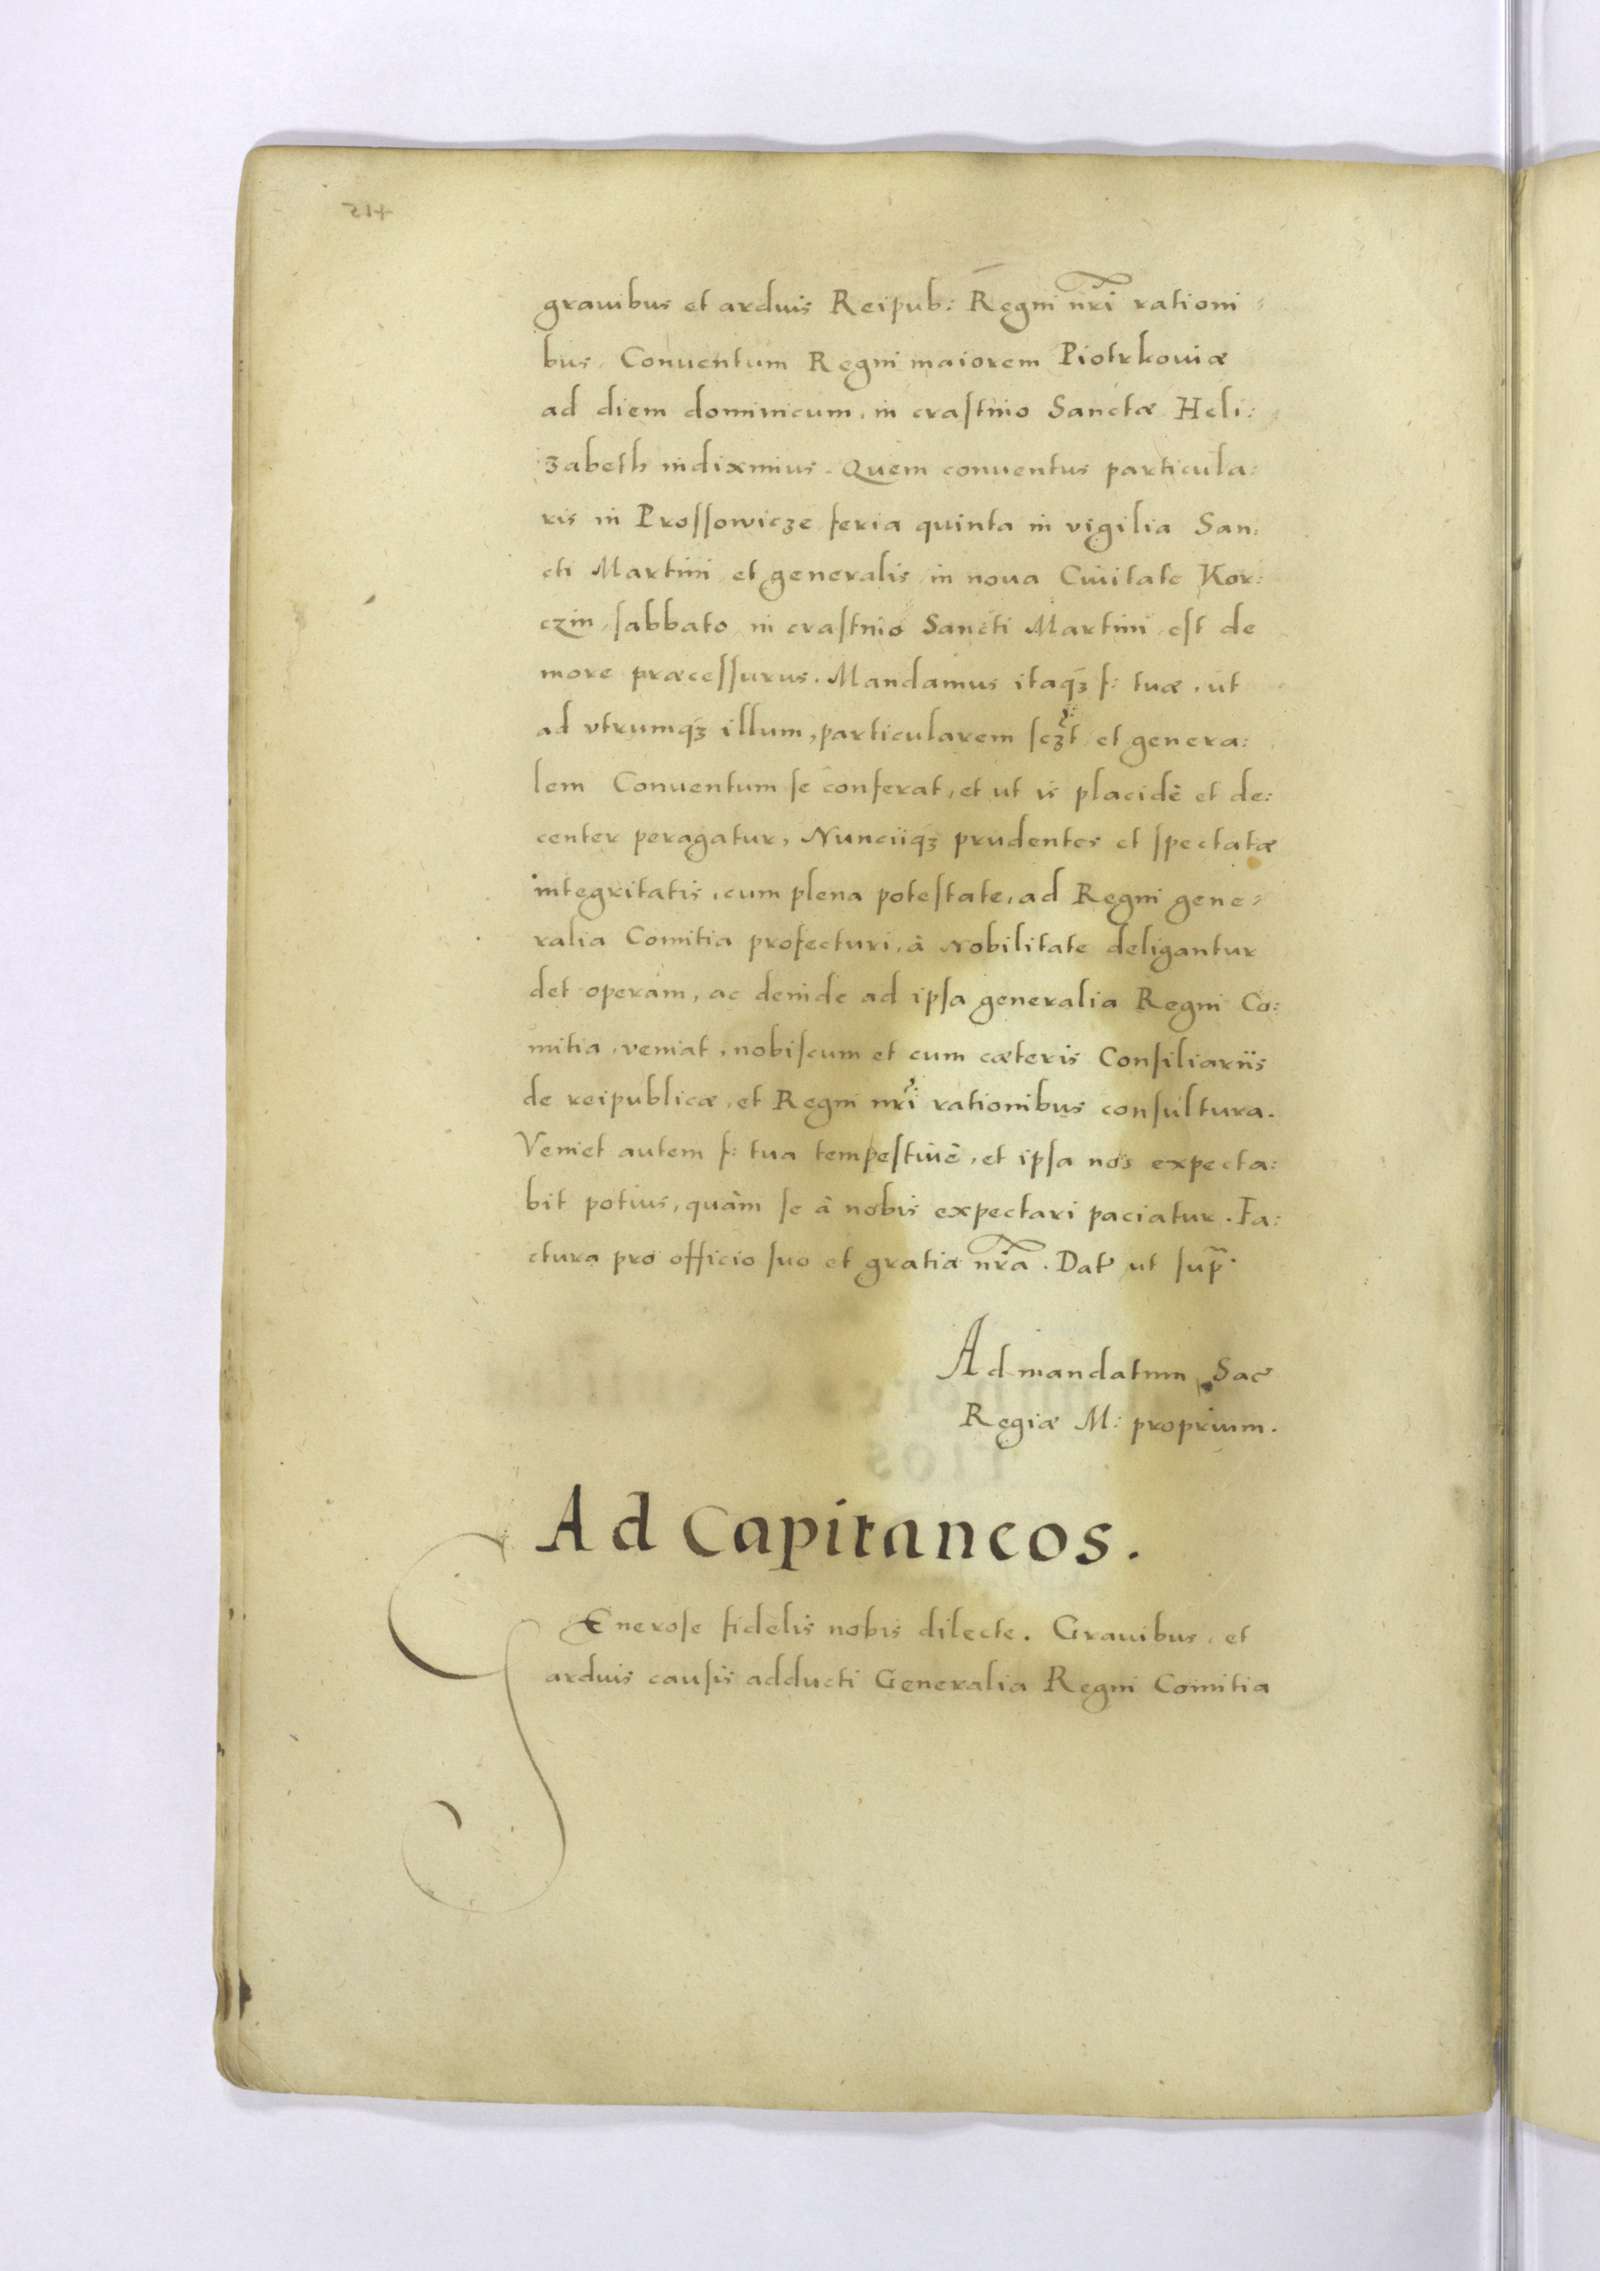 grauibus et arduis Reipub: Regni nr̃i rationi⸗
bus. Conuentum Regni maiorem Piotrkouiæ
ad diem dominicum, in craſtino Sanctæ Heli:
zabeth indiximus. Quem conuentus particula:
ris in Proſſowicze feria quinta in vigilia San:
cti Martini et generalis in noua Ciuitate Kor:
czin, ſabbato in craſtino Sancti Martini, eſt de
more præceſſurus. Mandamus itaqꝫ f: tuæ, ut
ad vtrumqꝫ illum, particularem ſcꝫt et genera:
lem Conuentum ſe conferat, et ut is placidè et de:
center peragatur, Nunciiqꝫ prudentes et ſpectatæ
integritatis, cum plena poteſtate, ad Regni gene⸗
ralia Comitia profecturi, à Nobilitate deligantur
det operam, ac deinde ad ipſa generalia Regni Co:
mitia, veniat, nobiſcum et cum cæteris Conſiliariis
de reipublicæ, et Regni nr̃i rationibus conſultura.
Veniet autem f: tua tempeſtiuè, et ipſa nos expecta:
bit potius, quàm ſe à nobis expectari paciatur. Fa:
ctura pro officio ſuo et gratia nr̃a. Dat̃ ut ſup̃.
Ad mandatum Sac̃
Regiæ M: proprium.
Ad Capitaneos.
GEneroſe fidelis nobis dilecte. Grauibus, et
arduis cauſis adducti Generalia Regni Comitia